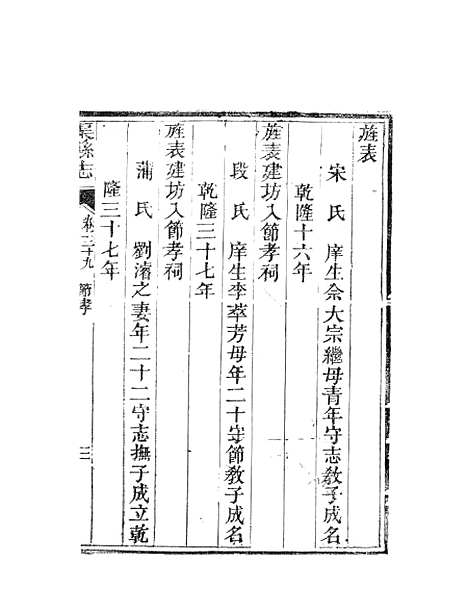 旌表
宋氏 庠生余大宗繼母青年守志教子成名
乾隆十六年
旌表建坊入節孝祠
段氏 庠生李萃芳母年二十守節教子成名
乾隆三十七年
旌表建坊入節孝祠
蒲氏 劉濬之妻年二十二守志撫子成立乾
隆三十七年
渠縣志 卷三十九 節孝 三